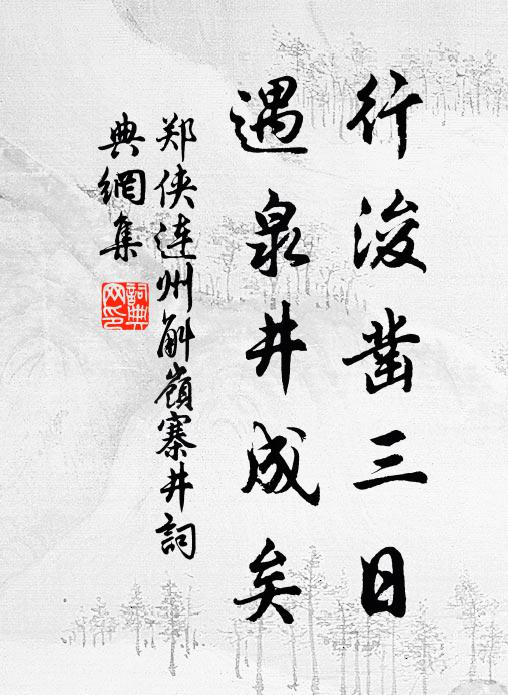 行浚凿三日
遇泉井成矣
郑侠连州斛嶺寨井詞
典網集
詞典网印